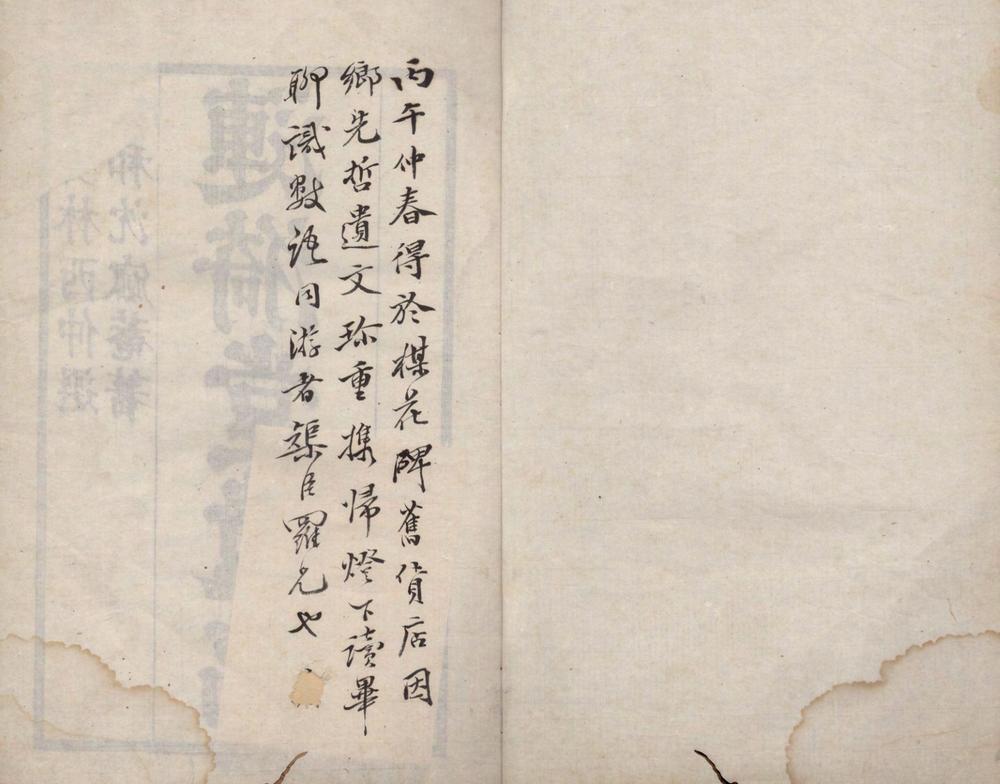 丙午仲春得於楳花碑舊貨店因
鄉先哲遺文珍重攜歸燈下讀畢
聊識數語同游者榘臣羅兄也